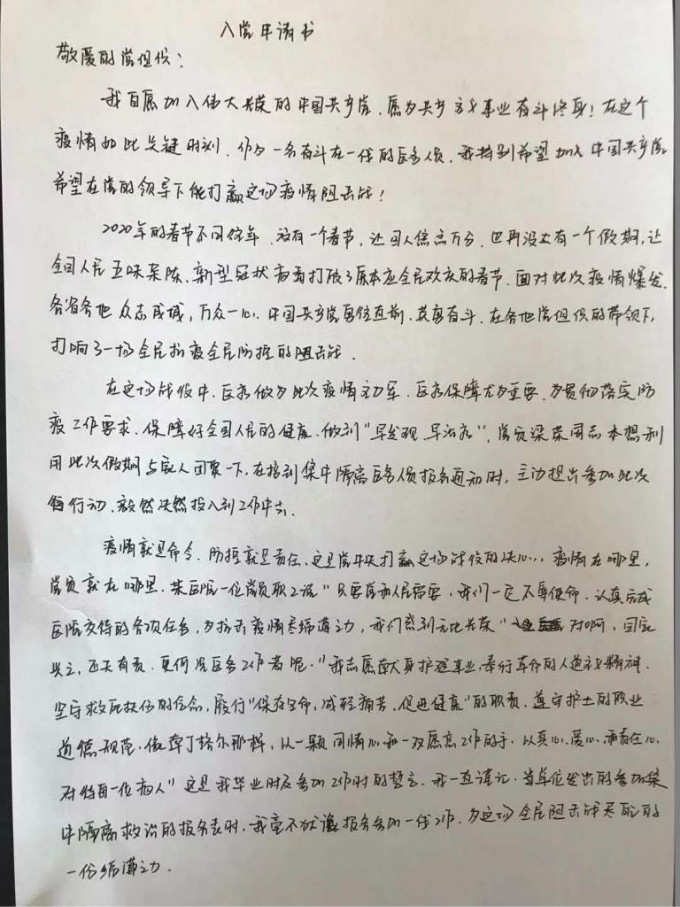 入党申请书
敬爱的党组织：
我自愿加入伟大光荣的中国共产党，愿为共产主义事业奋斗终身！在这个
疫情如此关键时刻，作为一名奋斗在一线的医务人员，我特别希望加入中国共产党，
希望在党的领导下能打赢这场疫情阻击战！
2020年的春节不同往年，没有一个春节，让国人焦虑万分，也再没有一个假期，让
全国人民五味杂陈，新型冠状病毒打破了原本应全民欢庆的春节，面对此次疫情爆发，
各省各地众志成城，万众一心，中国共产党勇往直前，艰苦奋斗，在各地党组织的带领下，
打响了一场全民抗疫全民防控的阻击战．
在这场战役中，医务做为此次疫情主力军，医务保障尤为重要，为贯彻落实防
疫工作要求，保障好全国人民的健康，做到"早发现，早治疗"，党员梁荣同志本想利
用此次假期与家人团聚一下，在接到集中隔离医务人员报名通知时，主动提出参加此次
行动，毅然决然投入到工作中去．
疫情就是命令，防控就是责任，这是党中央打赢这场战役的决心，病情在哪里，
党员就在哪里，某医院一位党员职工说"只要病人需要，我们一定不辱使命，认真完成
医院交待的各项任务，为抗击疫情奉绵薄之力，我们感到无比光荣"对啊，国家
兴亡，匹夫有责，更何况医务工作者呢．"我志愿献身护理事业，奉行革命的人道主义精神，
坚守救死扶伤的信念，履行"保存生命，减轻痛苦，促进健康"的职责，遵守护士的职业
道德规范，像南丁格尔那样，以一颗同情心和一双愿意工作的手，以真心、爱心、责任心
对待每一位病人"这是我毕业时及参加工作时的誓言，我一直谨记，当单位发出的参加集
中隔离救治的报名表时，我毫不犹豫报名参加一线工作，为这场全民阻击战奉献的
一份绵薄之力．